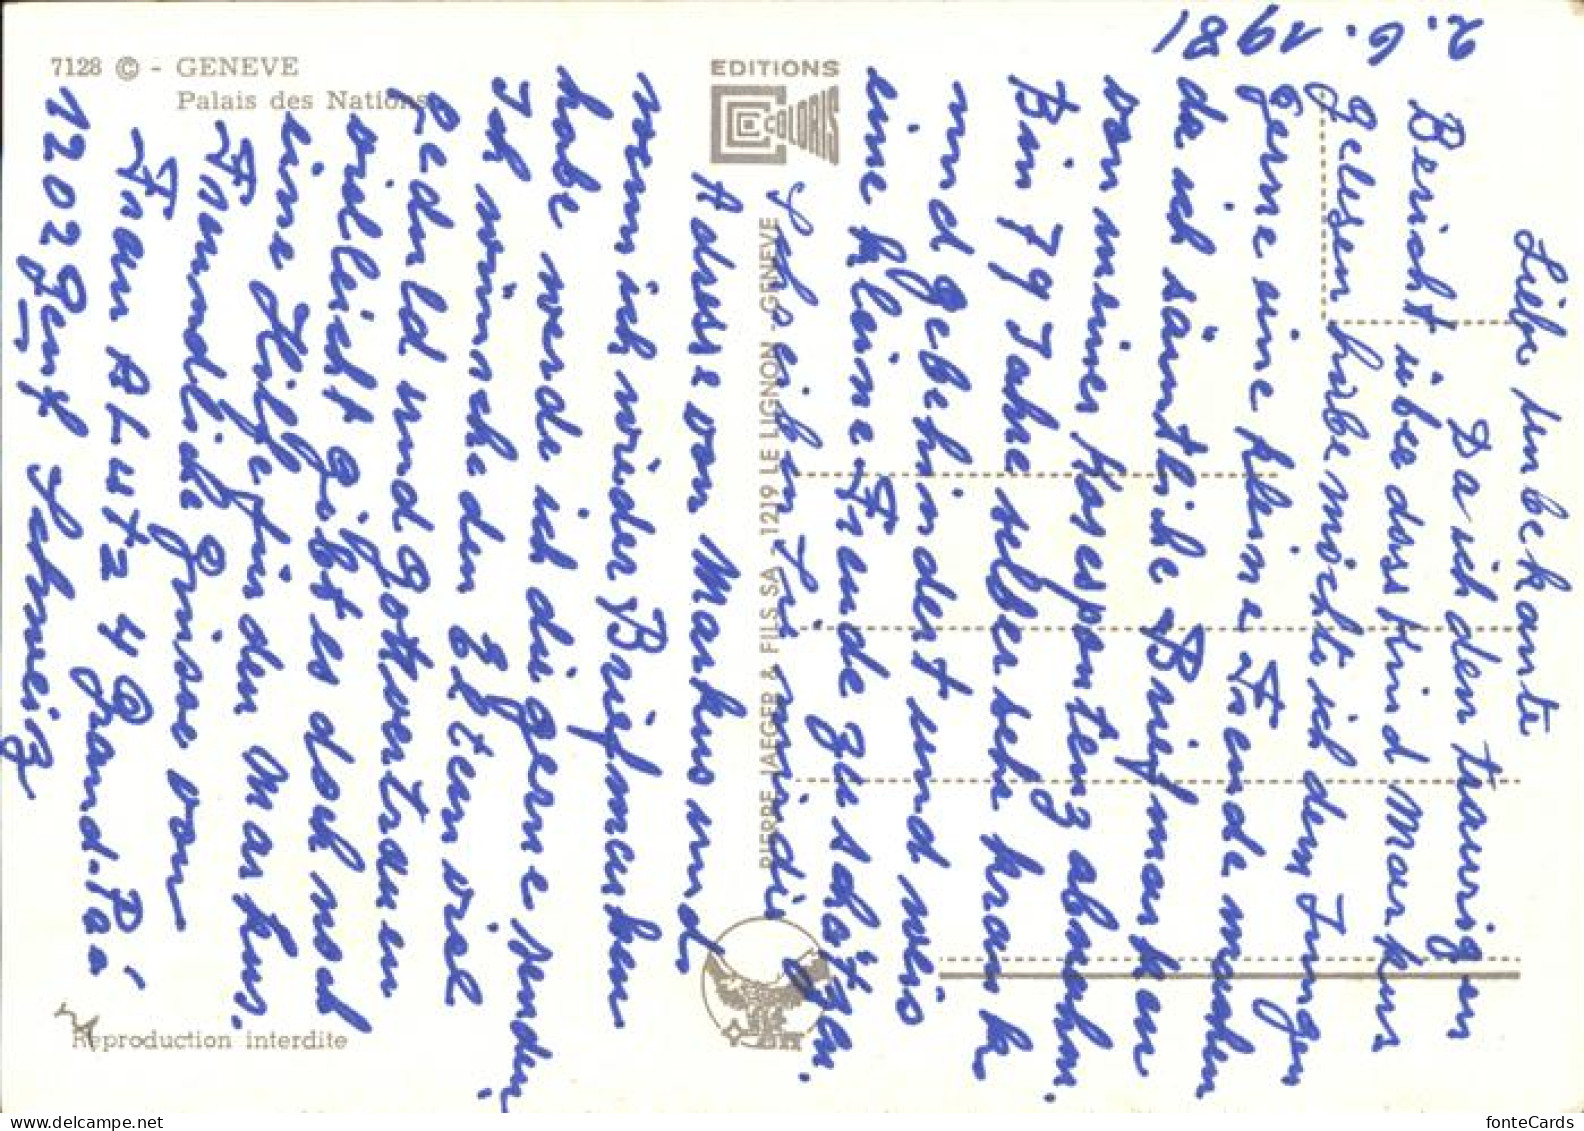 7128 © - GENEVE
Palais des Nations
EDITIONS
COLORIS
PIERRE JAEGER & FILS SA - 1219 LE LIGNON - GENEVE
Reproduction interdite
2. 6. 1981
Liebe Unbekante
Da ich den traurigen
Bericht über dass Kind Markus
gelesen habe möchte ich dem Jungen
gerne eine kleine Freude machen
da ich sämtliche Briefmarken
von meiner Korespontenz abnehm.
Bin 79 Jahre selber sehr krank
und gehindert und weis
eine kleine Freude zu schätzen.
Schreiben Sie mir die
Adresse von Markus und
wenn ich wieder Briefmarken
habe werde ich die gerne senden.
Ich wünsche den Eltern viel
Geduld und Gottvertrauen
vielleicht gibt es doch noch
eine Hilfe für den Markus.
Freundliche Grüsse von
Frau A Lutz 4 Grand-Pré
1202 Genf Schweiz
fonteCards